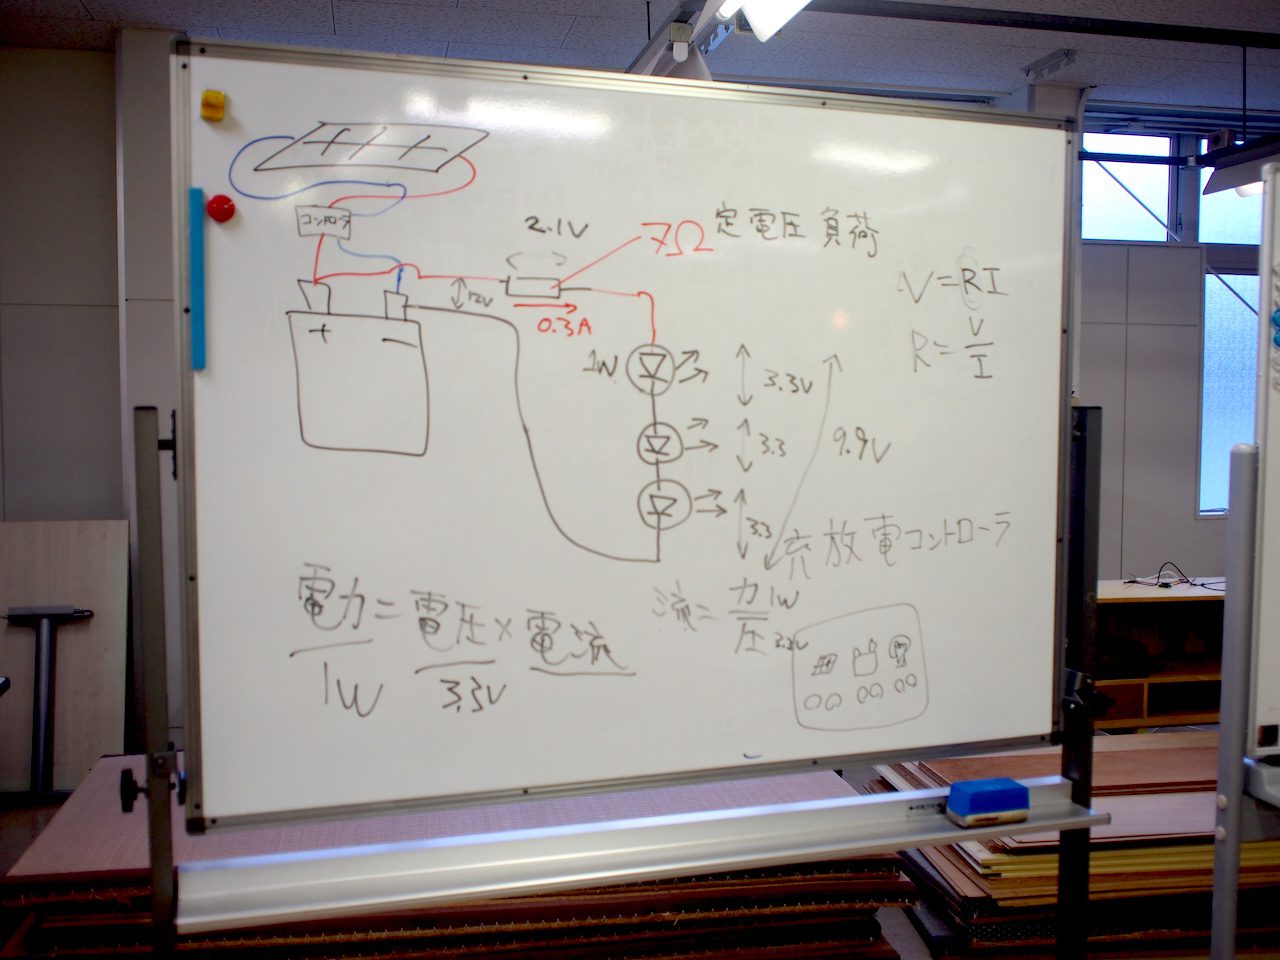 コントローラ
2.1V
7Ω
定電圧負荷
12V
0.3A
V=RI
R=V/I
+
−
1W
3.3V
3.3
3.3
9.9V
充放電コントローラ
電力=電圧×電流
1W
3.3V
流=力/圧
1W